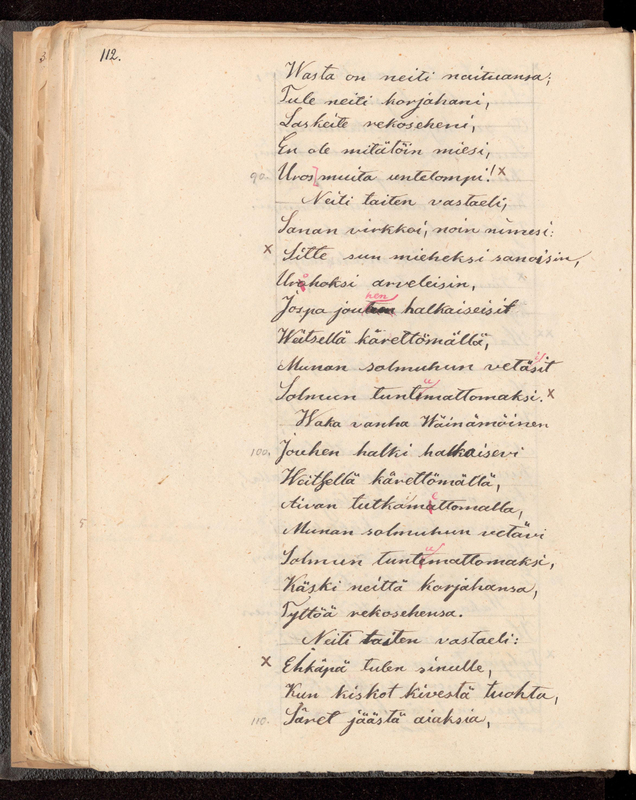 112.
Wasta on neiti naituansa;
Tule neiti korjahani,
Laskeite rekoseheni,
En ole mitätöin miesi,
90. Uros] muita untelompi! x
Neiti taiten vastaeli,
Sanan virkkoi, noin nimesi:
x Sitte sun mieheksi sanoisin,
Urohoksi arveleisin,
Jospa jouhen halkaiseisit
Weitsellä kärettömällä,
Munan solmuhun vetäisit
Solmun tuntumattomaksi. x
Waka vanha Wäinämöinen
100. Jouhen halki halkaisevi
Weitsellä kärettömällä,
Aivan tutkamettomalla,
Munan solmuhun vetävi
Solmun tuntumattomaksi,
Käski neittä korjahansa,
Tyttöä rekosehensa.
Neiti taiten vastaeli:
x Ehkäpä tulen sinulle,
Kun kiskot kivestä tuohta,
110. Säret jäästä aiaksia,